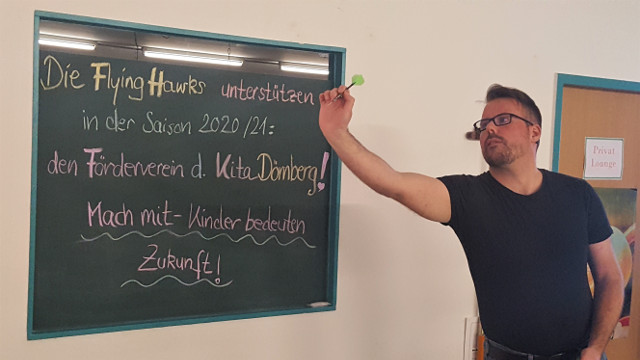 Die Flying Hawks unterstützen
in der Saison 2020/21:
den Förderverein d. Kita Dörnberg!
Mach mit- Kinder bedeuten
Zukunft!
Privat
Lounge